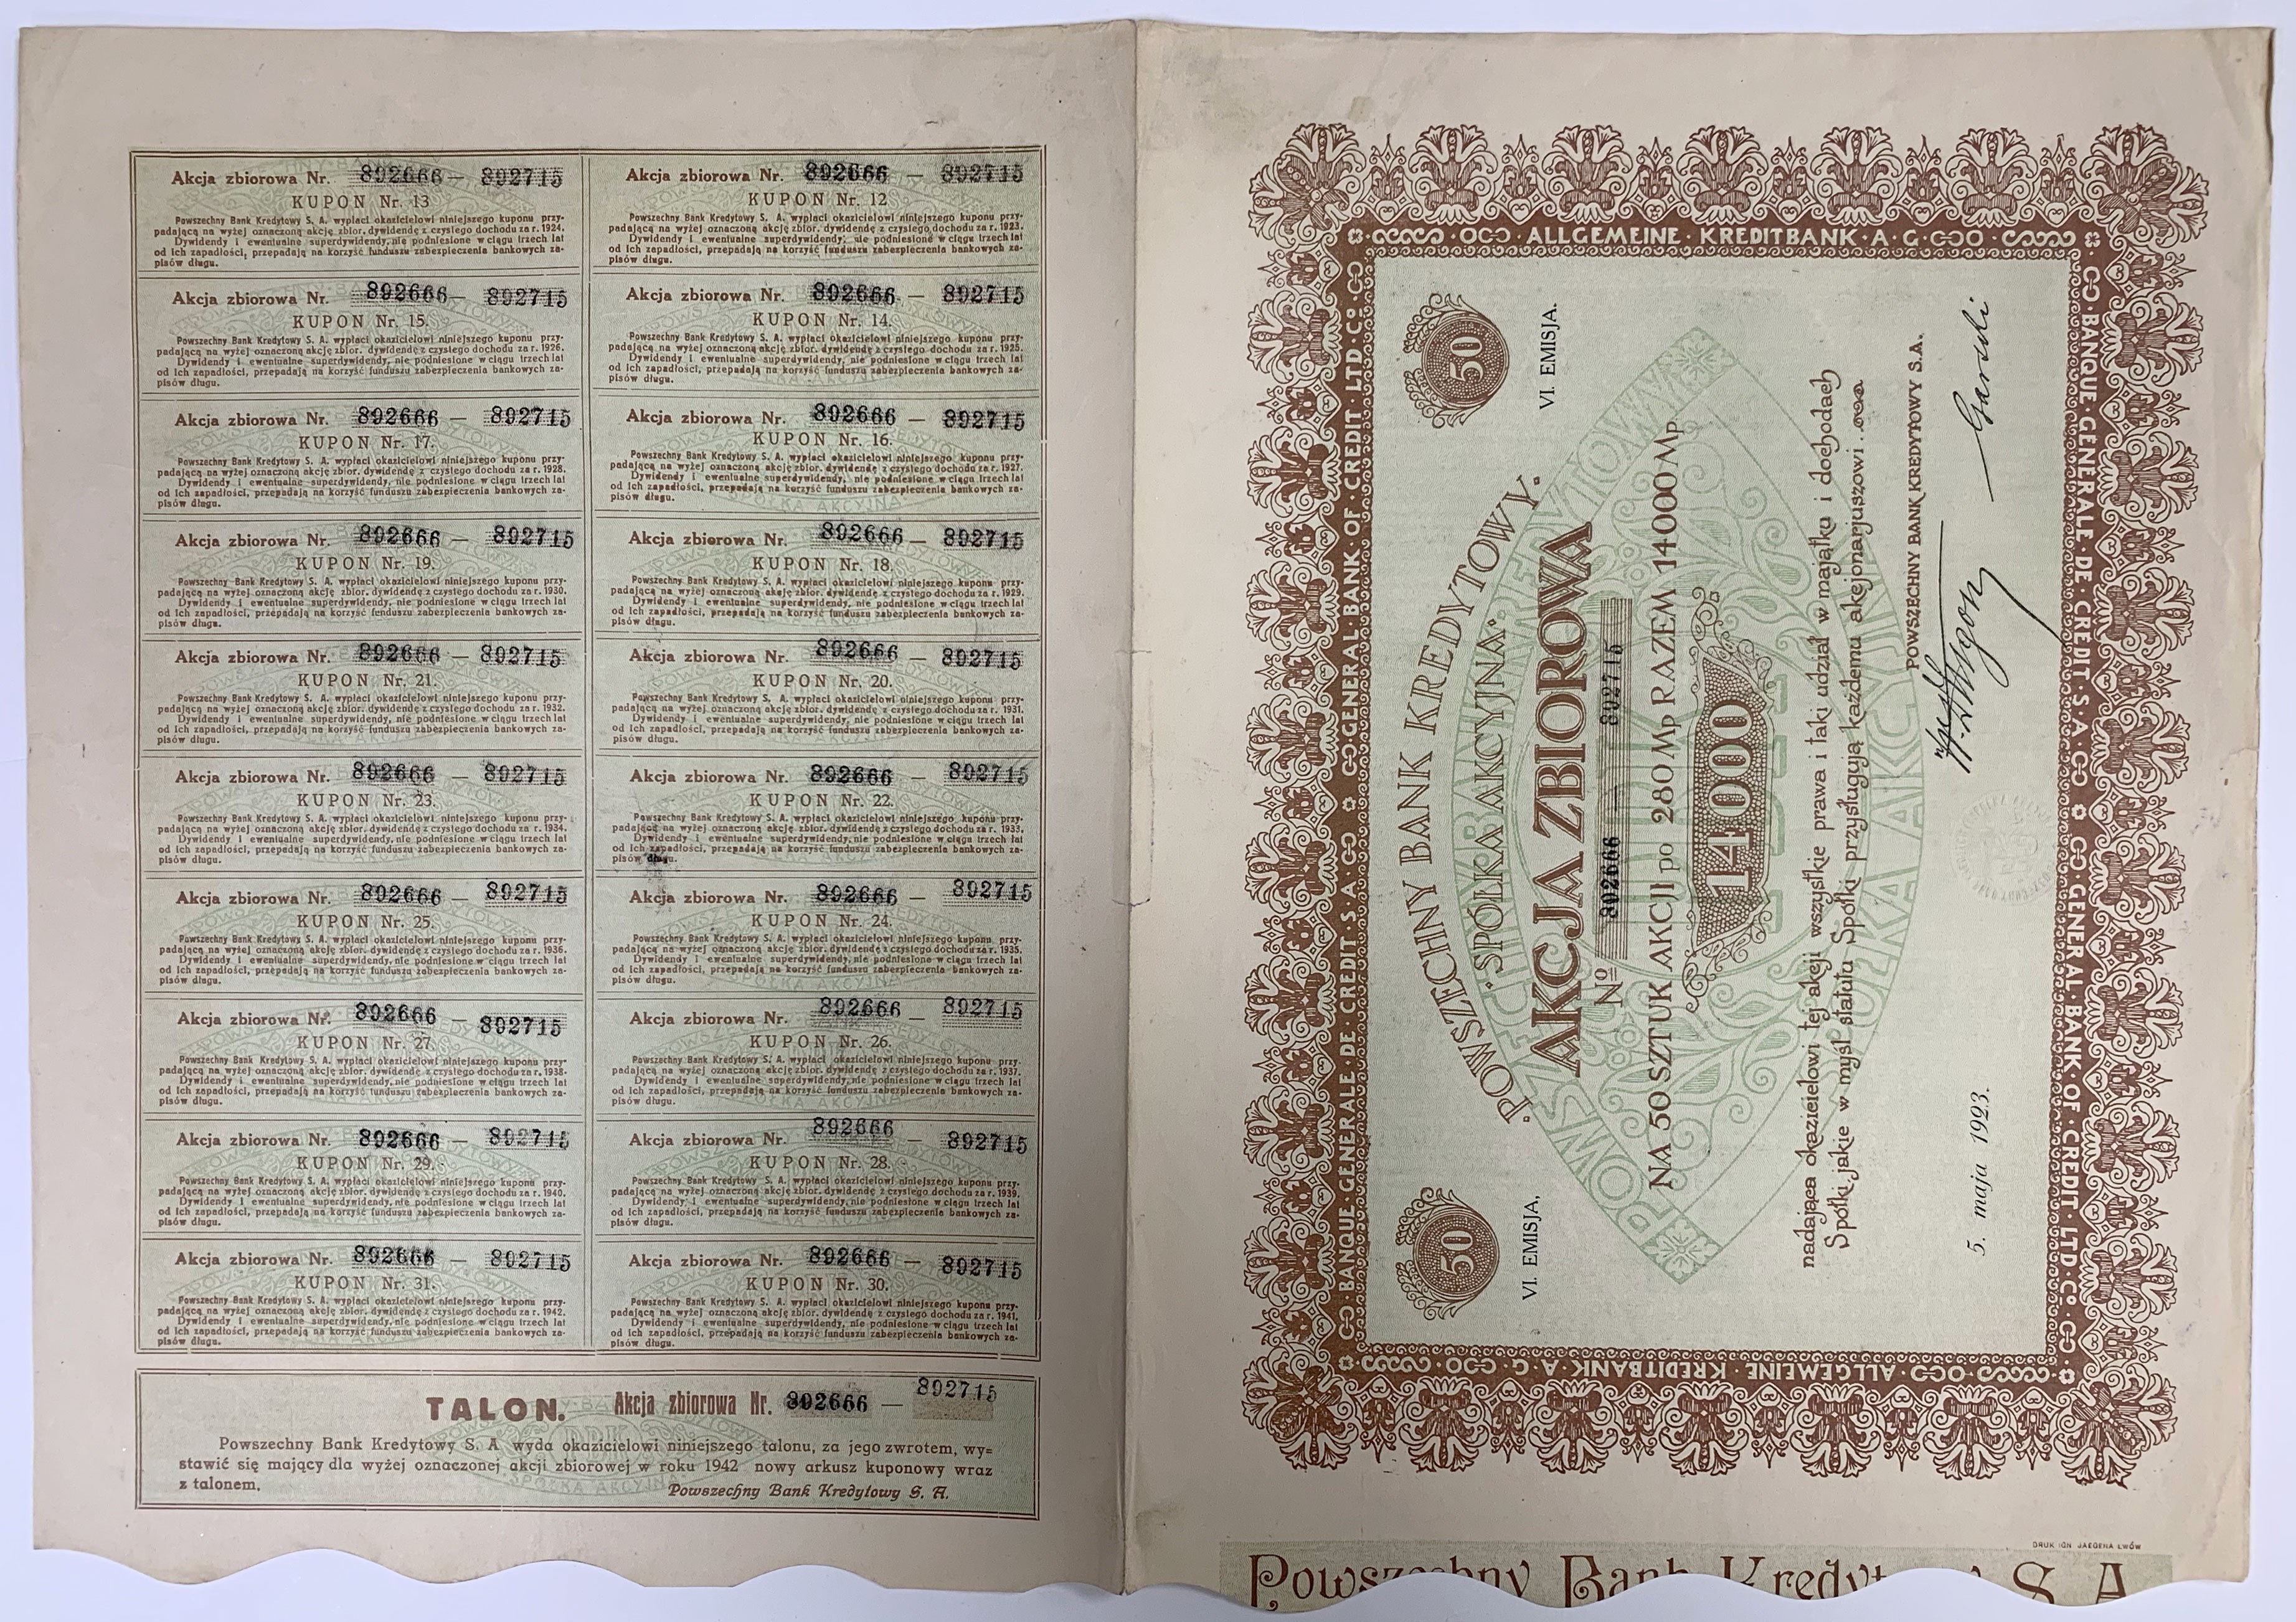 Akcja zbiorowa Nr. 892666 — 892715
KUPON Nr. 13
Powszechny Bank Kredytowy S. A. wypłaci okazicielowi niniejszego kuponu przy-
padającą na wyżej oznaczoną akcję zbior. dywidendę z czystego dochodu za r. 1924.
Dywidendy i ewentualne superdywidendy, nie podniesione w ciągu trzech lat
od ich zapadłości, przepadają na korzyść funduszu zabezpieczenia bankowych za-
pisów długu.
Akcja zbiorowa Nr. 892666 — 892715
KUPON Nr. 12
Powszechny Bank Kredytowy S. A. wypłaci okazicielowi niniejszego kuponu przy-
padającą na wyżej oznaczoną akcję zbior. dywidendę z czystego dochodu za r. 1923.
Dywidendy i ewentualne superdywidendy, nie podniesione w ciągu trzech lat
od ich zapadłości, przepadają na korzyść funduszu zabezpieczenia bankowych za-
pisów długu.
Akcja zbiorowa Nr. 892666 — 892715
KUPON Nr. 15.
Powszechny Bank Kredytowy S. A. wypłaci okazicielowi niniejszego kuponu przy-
padającą na wyżej oznaczoną akcję zbior. dywidendę z czystego dochodu za r. 1926.
Dywidendy i ewentualne superdywidendy, nie podniesione w ciągu trzech lat
od ich zapadłości, przepadają na korzyść funduszu zabezpieczenia bankowych za-
pisów długu.
Akcja zbiorowa Nr. 892666 — 892715
KUPON Nr. 14.
Powszechny Bank Kredytowy S. A. wypłaci okazicielowi niniejszego kuponu przy-
padającą na wyżej oznaczoną akcję zbior. dywidendę z czystego dochodu za r. 1925.
Dywidendy i ewentualne superdywidendy, nie podniesione w ciągu trzech lat
od ich zapadłości, przepadają na korzyść funduszu zabezpieczenia bankowych za-
pisów długu.
Akcja zbiorowa Nr. 892666 — 892715
KUPON Nr. 17.
Powszechny Bank Kredytowy S. A. wypłaci okazicielowi niniejszego kuponu przy-
padającą na wyżej oznaczoną akcję zbior. dywidendę z czystego dochodu za r. 1928.
Dywidendy i ewentualne superdywidendy, nie podniesione w ciągu trzech lat
od ich zapadłości, przepadają na korzyść funduszu zabezpieczenia bankowych za-
pisów długu.
Akcja zbiorowa Nr. 892666 — 892715
KUPON Nr. 16.
Powszechny Bank Kredytowy S. A. wypłaci okazicielowi niniejszego kuponu przy-
padającą na wyżej oznaczoną akcję zbior. dywidendę z czystego dochodu za r. 1927.
Dywidendy i ewentualne superdywidendy, nie podniesione w ciągu trzech lat
od ich zapadłości, przepadają na korzyść funduszu zabezpieczenia bankowych za-
pisów długu.
Akcja zbiorowa Nr. 892666 — 892715
KUPON Nr. 19.
Powszechny Bank Kredytowy S. A. wypłaci okazicielowi niniejszego kuponu przy-
padającą na wyżej oznaczoną akcję zbior. dywidendę z czystego dochodu za r. 1930.
Dywidendy i ewentualne superdywidendy, nie podniesione w ciągu trzech lat
od ich zapadłości, przepadają na korzyść funduszu zabezpieczenia bankowych za-
pisów długu.
Akcja zbiorowa Nr. 892666 — 892715
KUPON Nr. 18.
Powszechny Bank Kredytowy S. A. wypłaci okazicielowi niniejszego kuponu przy-
padającą na wyżej oznaczoną akcję zbior. dywidendę z czystego dochodu za r. 1929.
Dywidendy i ewentualne superdywidendy, nie podniesione w ciągu trzech lat
od ich zapadłości, przepadają na korzyść funduszu zabezpieczenia bankowych za-
pisów długu.
Akcja zbiorowa Nr. 892666 — 892715
KUPON Nr. 21.
Powszechny Bank Kredytowy S. A. wypłaci okazicielowi niniejszego kuponu przy-
padającą na wyżej oznaczoną akcję zbior. dywidendę z czystego dochodu za r. 1932.
Dywidendy i ewentualne superdywidendy, nie podniesione w ciągu trzech lat
od ich zapadłości, przepadają na korzyść funduszu zabezpieczenia bankowych za-
pisów długu.
Akcja zbiorowa Nr. 892666 — 892715
KUPON Nr. 20.
Powszechny Bank Kredytowy S. A. wypłaci okazicielowi niniejszego kuponu przy-
padającą na wyżej oznaczoną akcję zbior. dywidendę z czystego dochodu za r. 1931.
Dywidendy i ewentualne superdywidendy, nie podniesione w ciągu trzech lat
od ich zapadłości, przepadają na korzyść funduszu zabezpieczenia bankowych za-
pisów długu.
Akcja zbiorowa Nr. 892666 — 892715
KUPON Nr. 23.
Powszechny Bank Kredytowy S. A. wypłaci okazicielowi niniejszego kuponu przy-
padającą na wyżej oznaczoną akcję zbior. dywidendę z czystego dochodu za r. 1934.
Dywidendy i ewentualne superdywidendy, nie podniesione w ciągu trzech lat
od ich zapadłości, przepadają na korzyść funduszu zabezpieczenia bankowych za-
pisów długu.
Akcja zbiorowa Nr. 892666 — 892715
KUPON Nr. 22.
Powszechny Bank Kredytowy S. A. wypłaci okazicielowi niniejszego kuponu przy-
padającą na wyżej oznaczoną akcję zbior. dywidendę z czystego dochodu za r. 1933.
Dywidendy i ewentualne superdywidendy, nie podniesione w ciągu trzech lat
od ich zapadłości, przepadają na korzyść funduszu zabezpieczenia bankowych za-
pisów długu.
Akcja zbiorowa Nr. 892666 — 892715
KUPON Nr. 25.
Powszechny Bank Kredytowy S. A. wypłaci okazicielowi niniejszego kuponu przy-
padającą na wyżej oznaczoną akcję zbior. dywidendę z czystego dochodu za r. 1936.
Dywidendy i ewentualne superdywidendy, nie podniesione w ciągu trzech lat
od ich zapadłości, przepadają na korzyść funduszu zabezpieczenia bankowych za-
pisów długu.
Akcja zbiorowa Nr. 892666 — 892715
KUPON Nr. 24.
Powszechny Bank Kredytowy S. A. wypłaci okazicielowi niniejszego kuponu przy-
padającą na wyżej oznaczoną akcję zbior. dywidendę z czystego dochodu za r. 1935.
Dywidendy i ewentualne superdywidendy, nie podniesione w ciągu trzech lat
od ich zapadłości, przepadają na korzyść funduszu zabezpieczenia bankowych za-
pisów długu.
Akcja zbiorowa Nr. 892666 — 892715
KUPON Nr. 27.
Powszechny Bank Kredytowy S. A. wypłaci okazicielowi niniejszego kuponu przy-
padającą na wyżej oznaczoną akcję zbior. dywidendę z czystego dochodu za r. 1938.
Dywidendy i ewentualne superdywidendy, nie podniesione w ciągu trzech lat
od ich zapadłości, przepadają na korzyść funduszu zabezpieczenia bankowych za-
pisów długu.
Akcja zbiorowa Nr. 892666 — 892715
KUPON Nr. 26.
Powszechny Bank Kredytowy S. A. wypłaci okazicielowi niniejszego kuponu przy-
padającą na wyżej oznaczoną akcję zbior. dywidendę z czystego dochodu za r. 1937.
Dywidendy i ewentualne superdywidendy, nie podniesione w ciągu trzech lat
od ich zapadłości, przepadają na korzyść funduszu zabezpieczenia bankowych za-
pisów długu.
Akcja zbiorowa Nr. 892666 — 892715
KUPON Nr. 29.
Powszechny Bank Kredytowy S. A. wypłaci okazicielowi niniejszego kuponu przy-
padającą na wyżej oznaczoną akcję zbior. dywidendę z czystego dochodu za r. 1940.
Dywidendy i ewentualne superdywidendy, nie podniesione w ciągu trzech lat
od ich zapadłości, przepadają na korzyść funduszu zabezpieczenia bankowych za-
pisów długu.
Akcja zbiorowa Nr. 892666 — 892715
KUPON Nr. 28.
Powszechny Bank Kredytowy S. A. wypłaci okazicielowi niniejszego kuponu przy-
padającą na wyżej oznaczoną akcję zbior. dywidendę z czystego dochodu za r. 1939.
Dywidendy i ewentualne superdywidendy, nie podniesione w ciągu trzech lat
od ich zapadłości, przepadają na korzyść funduszu zabezpieczenia bankowych za-
pisów długu.
Akcja zbiorowa Nr. 892666 — 892715
KUPON Nr. 31.
Powszechny Bank Kredytowy S. A. wypłaci okazicielowi niniejszego kuponu przy-
padającą na wyżej oznaczoną akcję zbior. dywidendę z czystego dochodu za r. 1942.
Dywidendy i ewentualne superdywidendy, nie podniesione w ciągu trzech lat
od ich zapadłości, przepadają na korzyść funduszu zabezpieczenia bankowych za-
pisów długu.
Akcja zbiorowa Nr. 892666 — 892715
KUPON Nr. 30.
Powszechny Bank Kredytowy S. A. wypłaci okazicielowi niniejszego kuponu przy-
padającą na wyżej oznaczoną akcję zbior. dywidendę z czystego dochodu za r. 1941.
Dywidendy i ewentualne superdywidendy, nie podniesione w ciągu trzech lat
od ich zapadłości, przepadają na korzyść funduszu zabezpieczenia bankowych za-
pisów długu.
TALON. Akcja zbiorowa Nr. 892666 — 892715
Powszechny Bank Kredytowy S. A. wyda okazicielowi niniejszego talonu, za jego zwrotem, wy=
stawić się mający dla wyżej oznaczonej akcji zbiorowej w roku 1942 nowy arkusz kuponowy wraz
z talonem.
Powszechny Bank Kredytowy S. A.
BANQUE·GENERALE·DE·CREDIT·S·A· GENERAL·BANK OF CREDIT LTD Co
ALLGEMEINE·KREDITBANK·A·G·
BANQUE·GENERALE·DE·CREDIT·S·A· GENERAL·BANK OF·CREDIT LTD·C·
ALLGEMEINE KREDITBANK·A·G·
50 50
VI. EMISJA, VI. EMISJA.
·POWSZECHNY BANK KREDYTOWY·
·SPÓŁKA AKCYJNA·
AKCJA ZBIOROWA
No 892666 — 892715
NA 50 SZTUK AKCJI po 280 Mp RAZEM 14000 Mp
14000
nadająca okazicielowi tej akcji wszystkie prawa i taki udział w majątku i dochodach
Spółki, jakie w myśl statutu Spółki przysługują każdemu akcjonarjuszowi.
POWSZECHNY BANK KREDYTOWY S.A.
5. maja 1923.
DRUK IGN JAEGERA LWÓW
Powszechny Bank Kredytowy S. A.